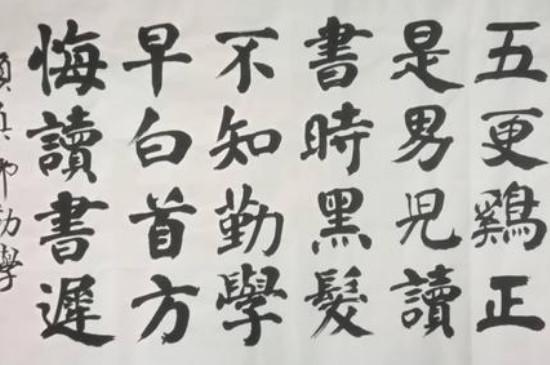 五更鷄正
是男児讀
書時黑髮
不知勤學
早白首方
悔讀書遲
顏真卿勸學